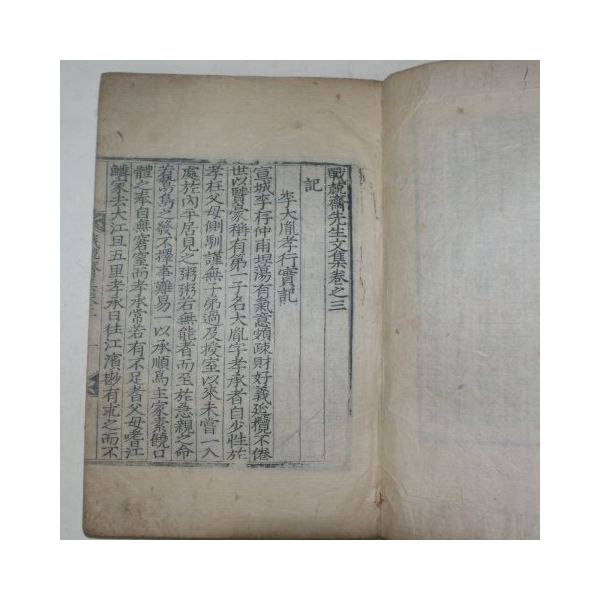 戰兢齋先生文集卷之三
記
李大胤孝行實記
宣城李存仲甫坦蕩有氣意頗疎財好義延攬不倦
世以賢家稱有第一子名大胤字孝承者自少性於
孝在父母側馴謹無子弟過及授室以來未嘗一入
處於內平居見之粥粥若無能者而至於急親之命
若爲之發不擇事難易一以承順爲主家素饒口
體之奉自無窘窒而孝承常若有不足者父母嗜江
鱗家去大江且五里孝承日往江濱尠有求之而不